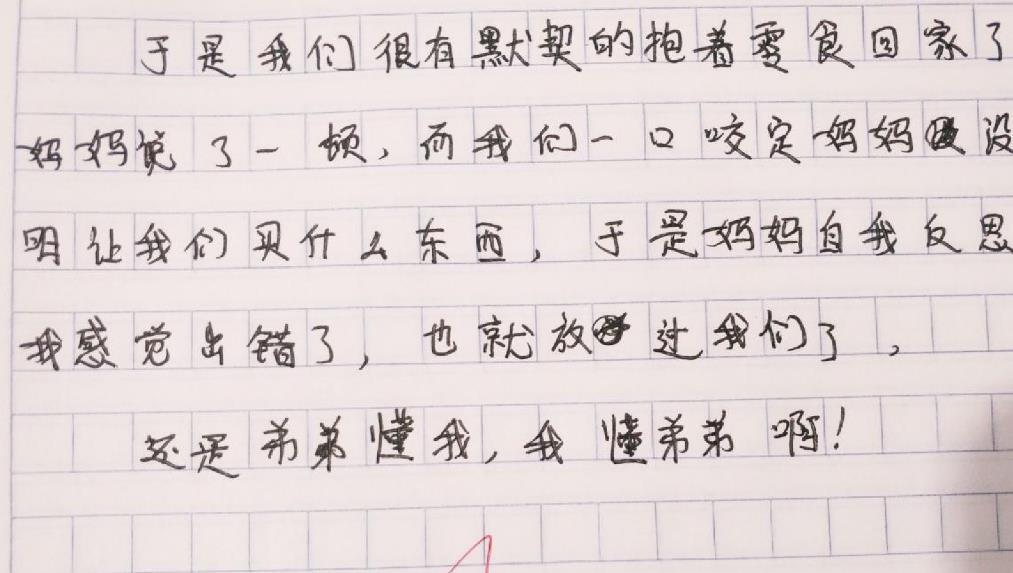 于是我们很有默契的抱着零食回家了
妈妈说了一顿,而我们一口咬定妈妈没
明让我们买什么东西,于是妈妈自我反思
我感觉出错了,也就放过我们了,
还是弟弟懂我,我懂弟弟啊!